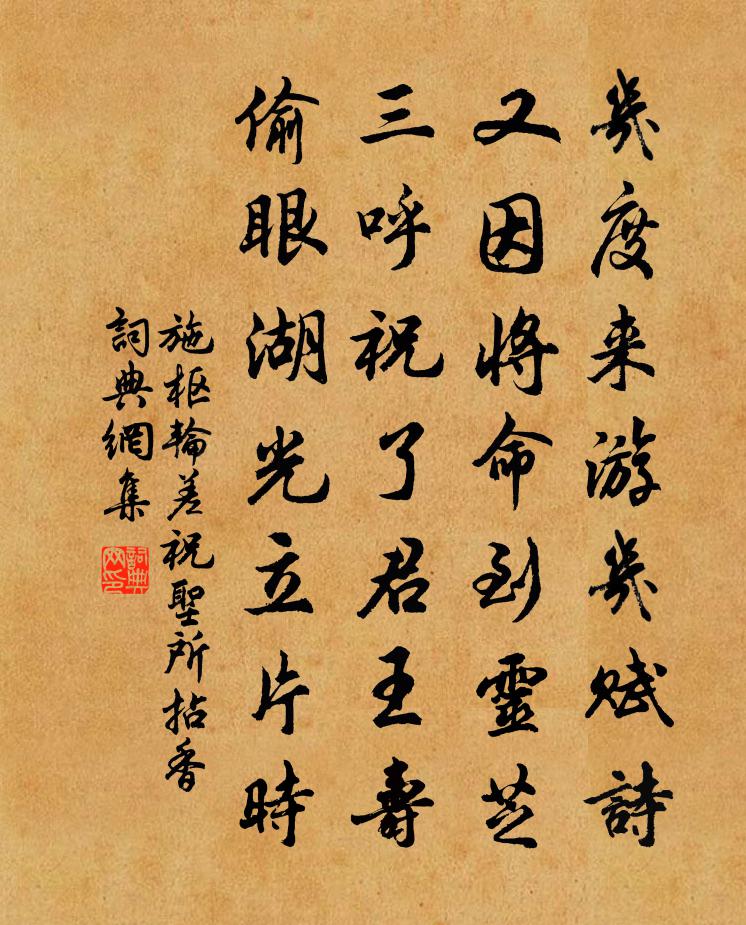 幾度来游幾賦詩
又因將命到靈芝
三呼祝了君王壽
偷眼湖光立片時
施枢輪差祝聖所拈香
詞典網集
詞典网印